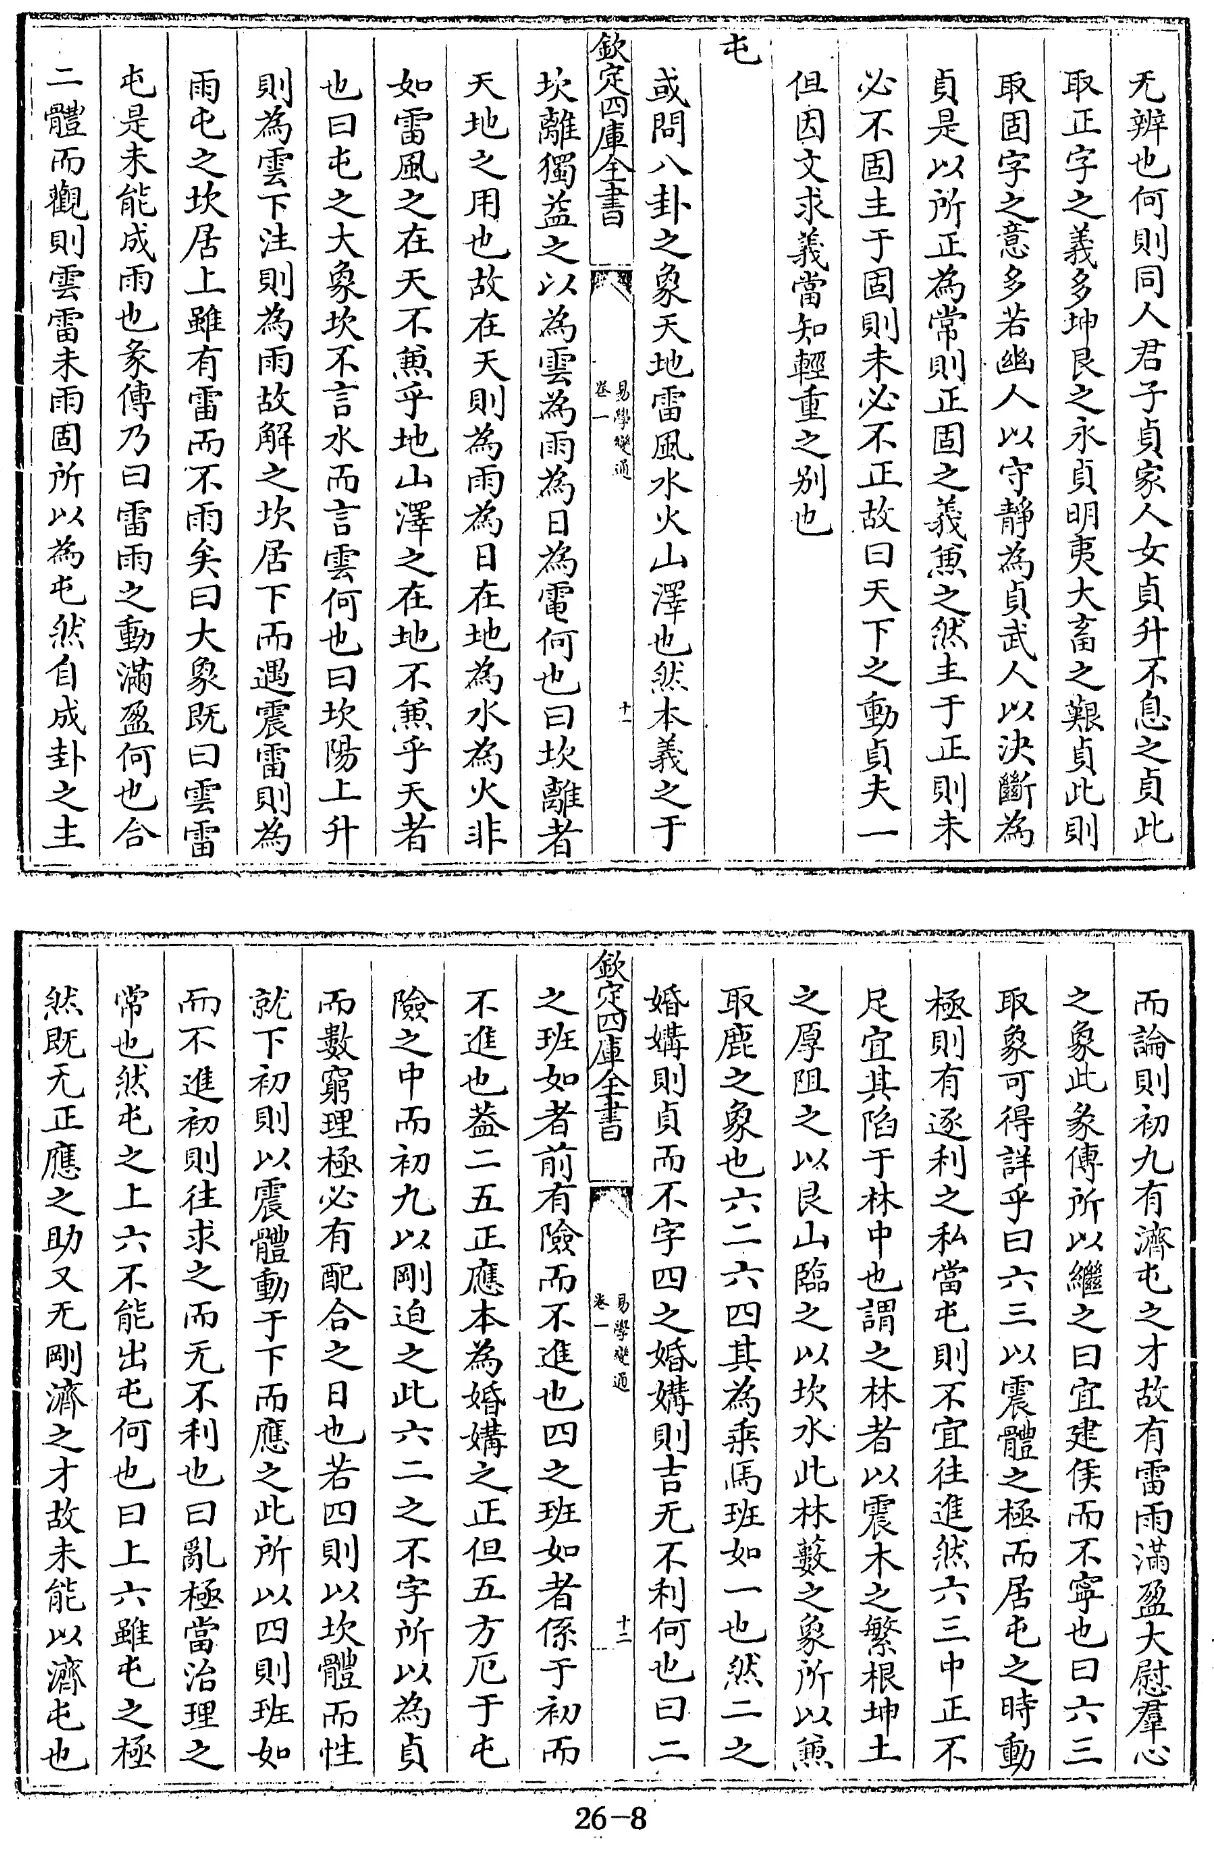 无辨也何則同人君子貞家人女貞升不息之貞此
取正字之義多坤艮之永貞明夷大畜之艱貞此則
取固字之意多若幽人以守靜為貞武人以決斷為
貞是以所正為常則正固之義𠔥之然主于正則未
必不固主于固則未必不正故曰天下之動貞夫一
但因文求義當知輕重之别也
屯
或問八卦之象天地雷風水火山澤也然本義之于
欽定四庫全書
易學變通
卷一
十一
坎離獨益之以為雲為雨為日為電何也曰坎離者
天地之用也故在天則為雨為日在地為水為火非
如雷風之在天不𠔥乎地山澤之在地不𠔥乎天者
也曰屯之大象坎不言水而言雲何也曰坎陽上升
則為雲下注則為雨故解之坎居下而遇震雷則為
雨屯之坎居上雖有雷而不雨矣曰大象既曰雲雷
屯是未能成雨也彖傳乃曰雷雨之動滿盈何也合
二體而觀則雲雷未雨固所以為屯然自成卦之主
而論則初九有濟屯之才故有雷雨滿盈大慰羣心
之象此彖傳所以繼之曰宜建侯而不寧也曰六三
取象可得詳乎曰六三以震體之極而居屯之時動
極則有逐利之私當屯則不宜往進然六三中正不
足宜其陷于林中也謂之林者以震木之繁根坤土
之厚阻之以艮山臨之以坎水此林藪之象所以𠔥
取鹿之象也六二六四其為乘馬班如一也然二之
婚媾則貞而不字四之婚媾則吉无不利何也曰二
欽定四庫全書
易學變通
卷一
十二
之班如者前有險而不進也四之班如者係于初而
不進也葢二五正應本為婚媾之正但五方厄于屯
險之中而初九以剛迫之此六二之不字所以為貞
而數窮理極必有配合之日也若四則以坎體而性
就下初則以震體動于下而應之此所以四則班如
而不進初則往求之而无不利也曰亂極當治理之
常也然屯之上六不能出屯何也曰上六雖屯之極
然既无正應之助又无剛濟之才故未能以濟屯也
26-8